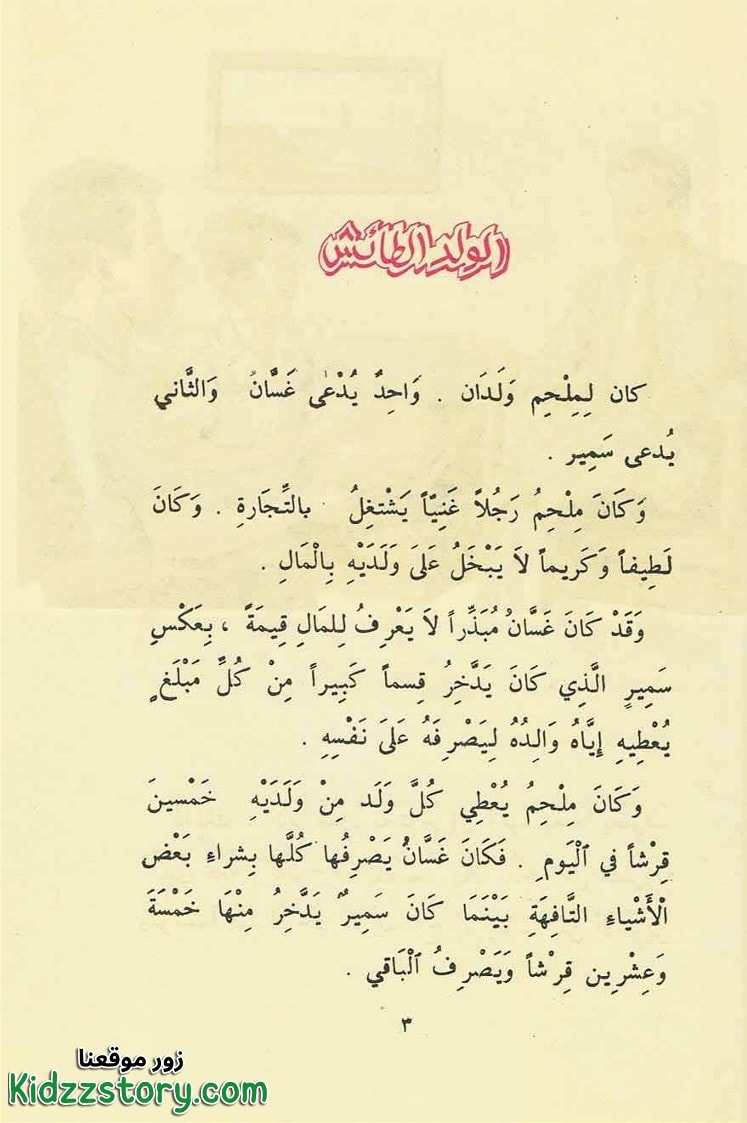 الولد الطائش
كان لِمِلْحِم وَلَدَان . وَاحِدٌ يُدْعٰى غَسَّانُ وَالثَّاني
يُدعى سَمِير .
وَكَانَ مِلْحِمُ رَجُلاً غَنِيّاً يَشْتغِلُ بالتِّجَارةِ . وَكَانَ
لَطِيفاً وَكَرِيماً لاَ يَبْخَلُ عَلىَ وَلَدَيْهِ بِالْمَالِ .
وَقَدْ كَانَ غَسَّانُ مُبَذِّراً لاَ يَعْرِفُ لِلمَالِ قِيمَةً ، بِعَكْسِ
سَمِيرٍ الَّذِي كَانَ يَدَّخِرُ قِسماً كَبِيراً مِنْ كُلِّ مَبْلَغٍ
يُعْطِيهِ إِيَّاهُ وَالِدُهُ لِيَصْرِفَهُ عَلىَ نَفْسِهِ .
وَكَانَ مِلْحِمُ يُعْطِي كُلَّ وَلَد مِنْ وَلَدَيْهِ خَمْسينَ
قِرْشاً في ٱلْيَومِ . فَكَانَ غَسَّانُ يَصْرِفُها كُلَّها بِشراءِ بَعْض
الْأَشْياءِ التَّافِهَةِ بَيْنَمَا كَانَ سَمِيرٌ يَدَّخِرُ مِنْهَا خَمْسَةَ
وَعِشْرِين قِرْشاً وَيَصْرِفُ ٱلْبَاقي .
٣
زور موقعنا
Kidzzstory.com